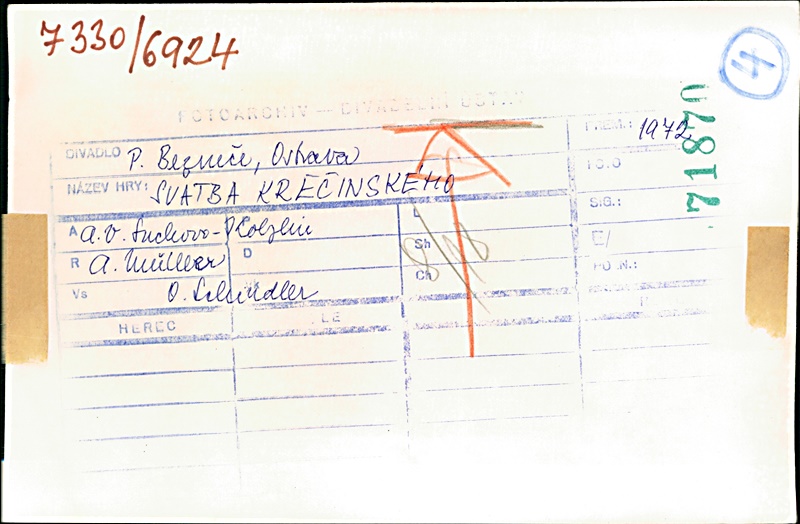 7330/6924
4
FOTOARCHIV — DIVADELNÍ ÚSTAV
71870
DIVADLO P. Bezruče, Ostrava PREM.: 1972
NÁZEV HRY: SVATBA KREČINSKÉHO
A A. V. Suchovo-Kobylin L SIG.:
R A. Müller D Sh E/
Vs O. Schindler Ch
HEREC